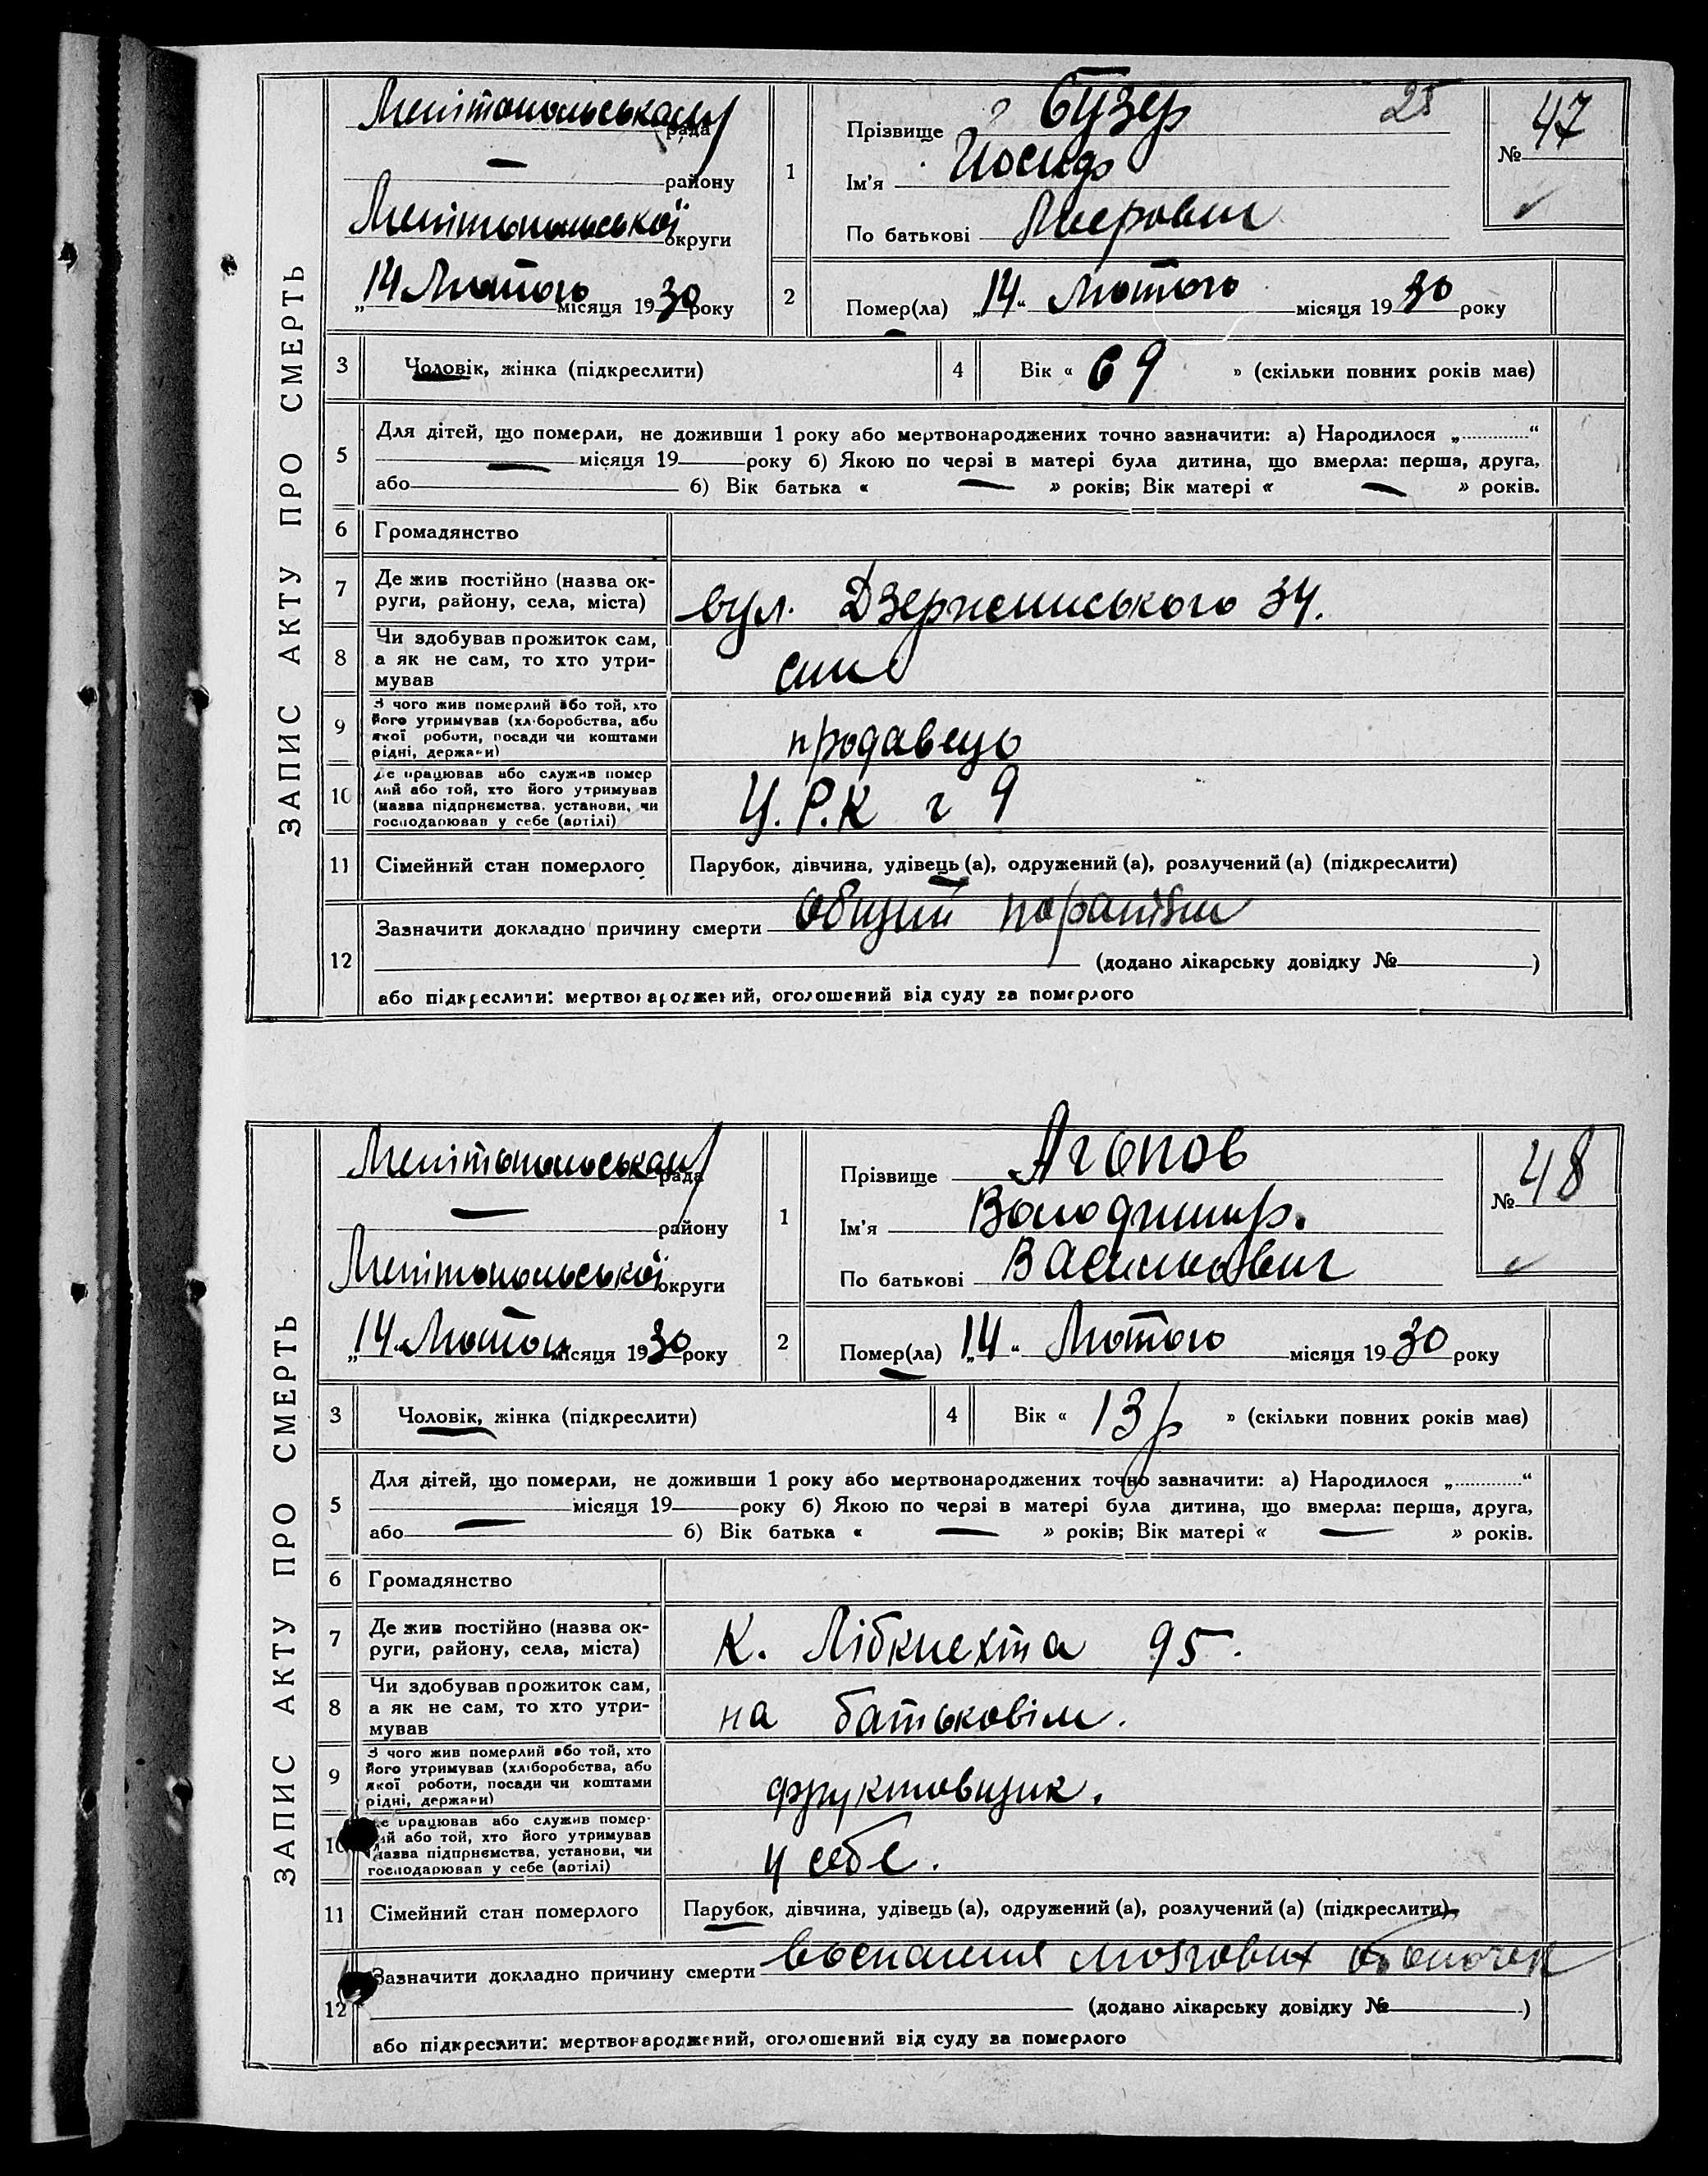 ЗАПИС АКТУ ПРО СМЕРТЬ
Мелітопольська рада
— району
Мелітопольської округи
„14 Лютого місяця 1930 року
1
Прізвище Бузер 25
Ім'я Йосиф
По батькові Меерович
№ 47
2
Помер(ла) „14“ Лютого місяця 1930 року
3 Чоловік, жінка (підкреслити)
4 Вік « 69 » (скільки повних років має)
5 Для дітей, що померли, не доживши 1 року або мертвонароджених точно зазначити: а) Народилося „............“
— місяця 19 року б) Якою по черзі в матері була дитина, що вмерла: перша, друга,
або б) Вік батька « — » років; Вік матері « — » років.
6 Громадянство
7 Де жив постійно (назва округи, району, села, міста) вул. Дзержинського 34.
8 Чи здобував прожиток сам, а як не сам, то хто утримував син
9 З чого жив померлий або той, хто його утримував (хліборобства, або якої роботи, посади чи коштами рідні, держави) продавець
10 Де працював або служив померлий або той, хто його утримував (назва підприємства, установи, чи господарював у себе (артілі) Ц.Р.К г 9
11 Сімейний стан померлого Парубок, дівчина, удівець (а), одружений (а), розлучений (а) (підкреслити)
12 Зазначити докладно причину смерти общий параліш
(додано лікарську довідку № )
або підкреслити: мертвонароджений, оголошений від суду за померлого
ЗАПИС АКТУ ПРО СМЕРТЬ
Мелітопольська рада
— району
Мелітопольської округи
„14 Лютого місяця 1930 року
1
Прізвище Агопов
Ім'я Володимир.
По батькові Василкович
№ 48
2
Помер(ла) „14“ Лютого місяця 1930 року
3 Чоловік, жінка (підкреслити)
4 Вік « 13 р » (скільки повних років має)
5 Для дітей, що померли, не доживши 1 року або мертвонароджених точно зазначити: а) Народилося „............“
місяця 19 року б) Якою по черзі в матері була дитина, що вмерла: перша, друга,
або — б) Вік батька « — » років; Вік матері « — » років.
6 Громадянство
7 Де жив постійно (назва округи, району, села, міста) К. Лібкнехта 95.
8 Чи здобував прожиток сам, а як не сам, то хто утримував на батьковім.
9 З чого жив померлий або той, хто його утримував (хліборобства, або якої роботи, посади чи коштами рідні, держави) фруктовщик.
10 Де працював або служив померлий або той, хто його утримував (назва підприємства, установи, чи господарював у себе (артілі) у себе.
11 Сімейний стан померлого Парубок, дівчина, удівець (а), одружений (а), розлучений (а) (підкреслити)
12 Зазначити докладно причину смерти воспаления мозгових оболочек
(додано лікарську довідку № )
або підкреслити: мертвонароджений, оголошений від суду за померлого